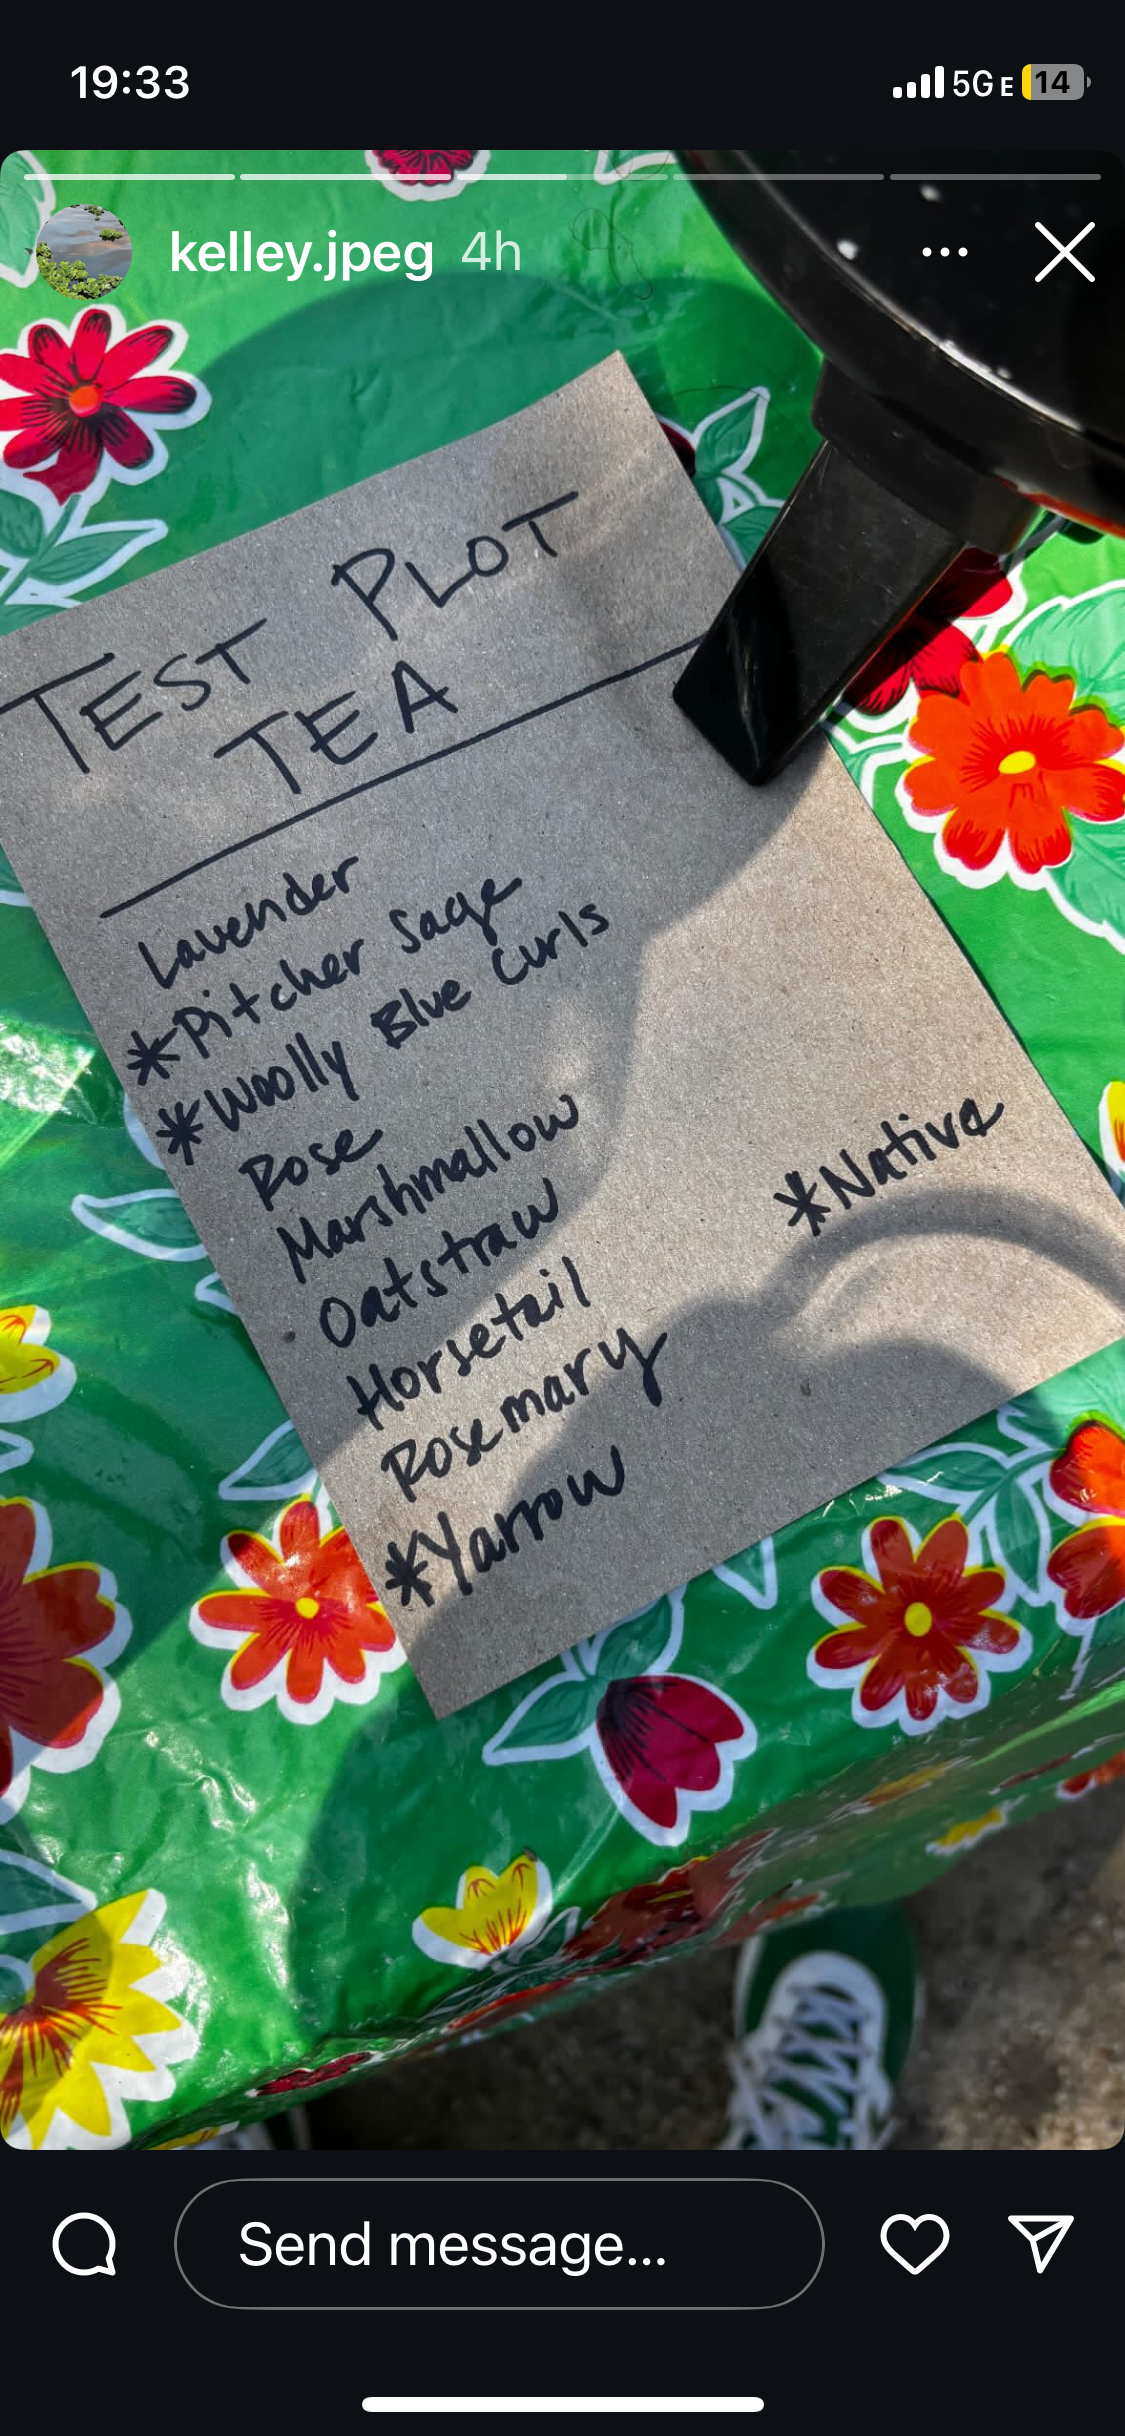 19:33
5G E 14
kelley.jpeg 4h
TEST PLOT
TEA
Lavender
*Pitcher Sage
*Woolly Blue Curls
Rose
Marshmallow
Oatstraw
Horsetail
Rosemary
*Yarrow
*Native
Send message...